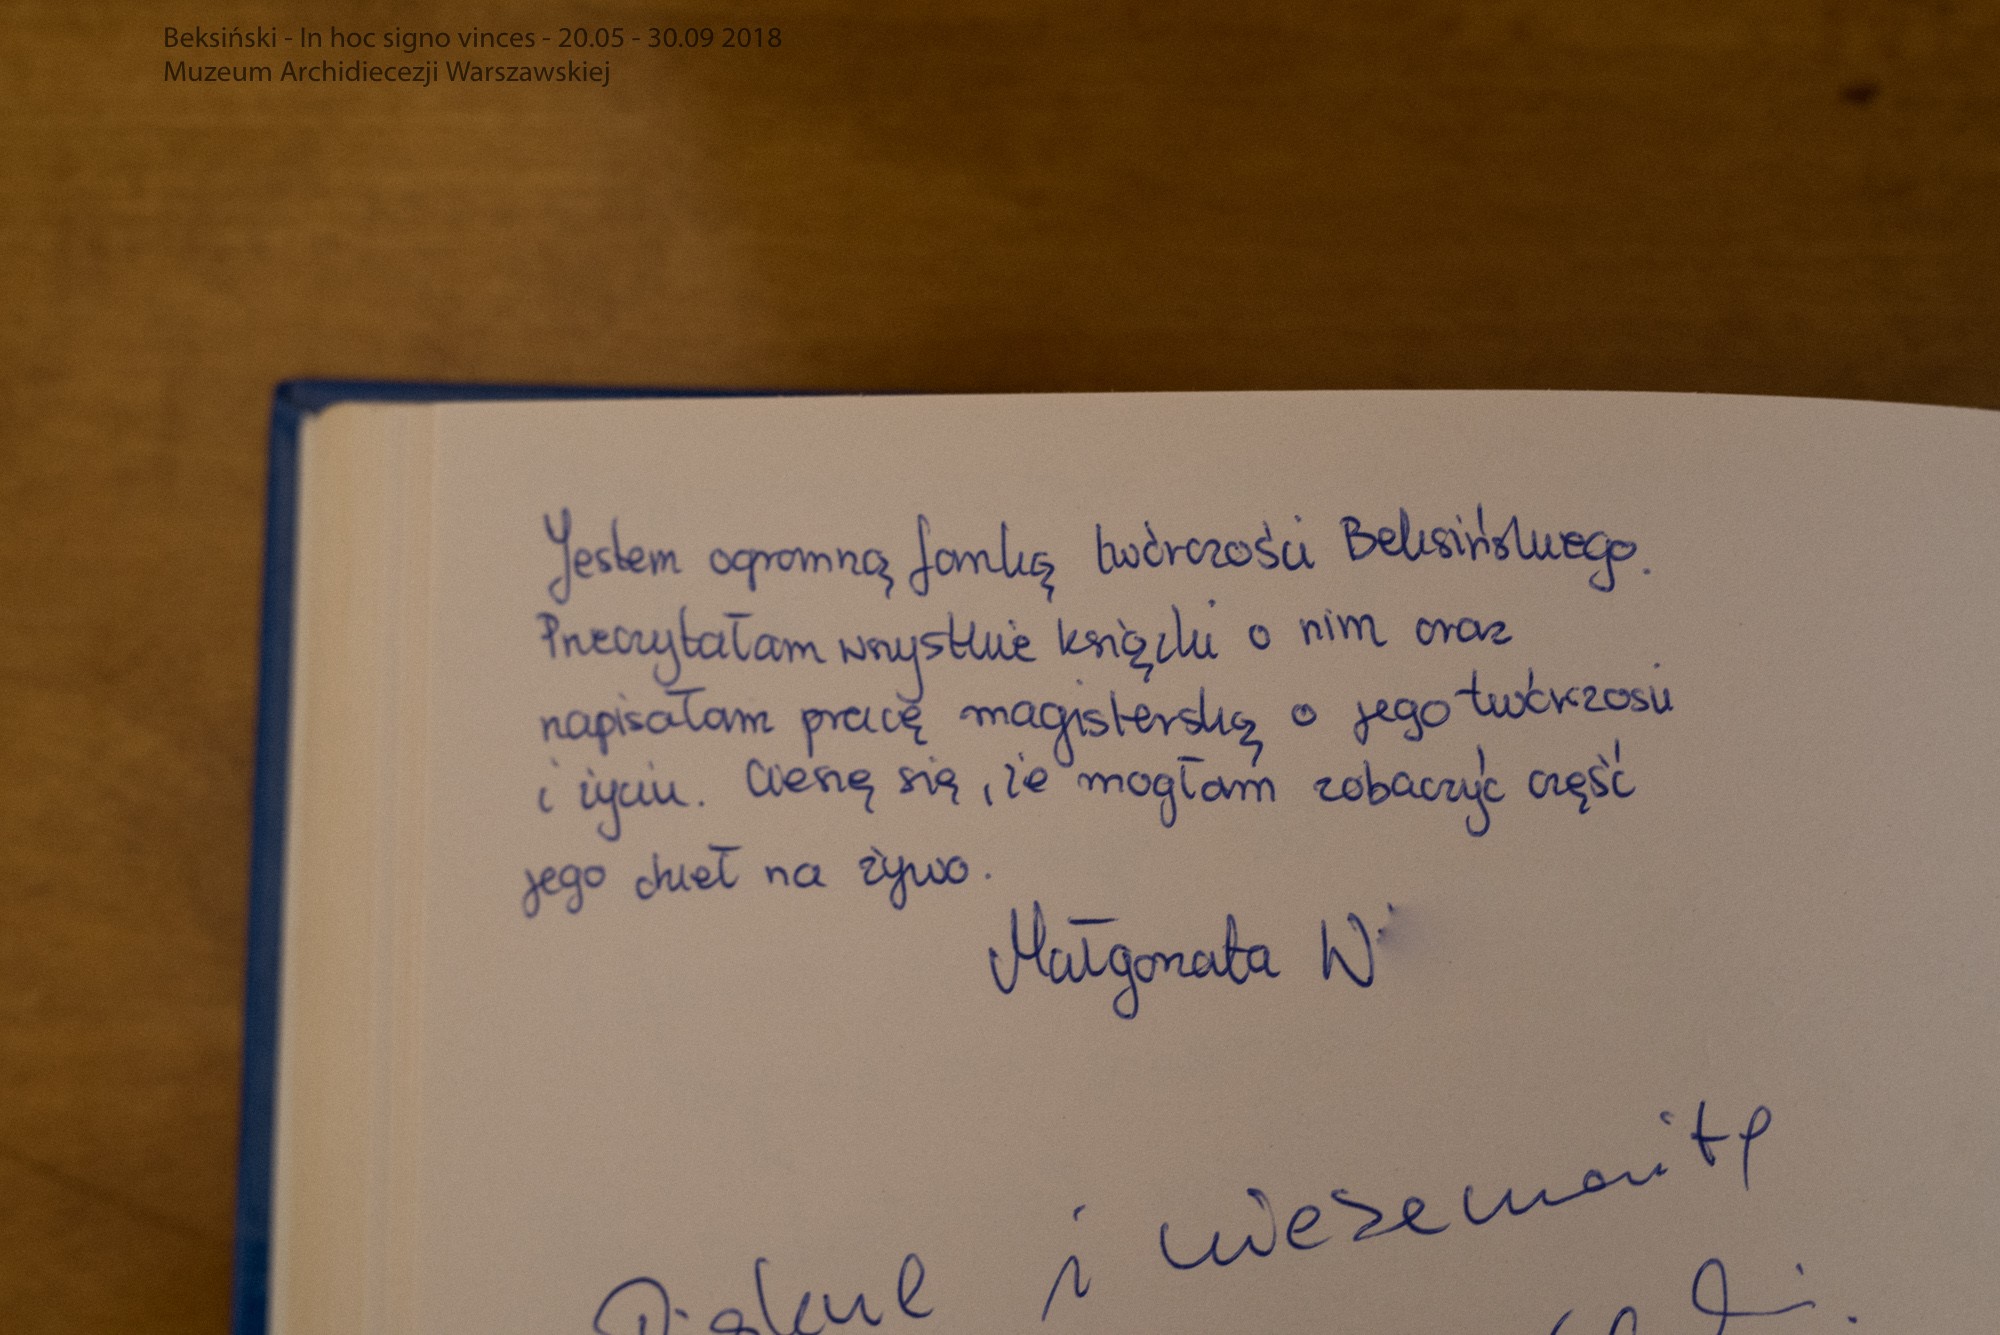 Beksiński - In hoc signo vinces - 20.05 - 30.09 2018
Muzeum Archidiecezji Warszawskiej
Jestem ogromną fanką twórczości Beksińskiego.
Przeczytałam wszystkie książki o nim oraz
napisałam pracę magisterską o jego twórczości
i życiu. Cieszę się, że mogłam zobaczyć część
jego dzieł na żywo.
Małgorzata W
Piękne i niesamowite